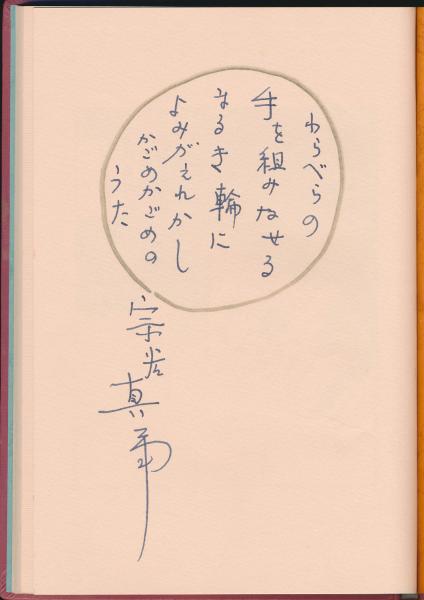 わらべらの
手を組みなせる
まるき輪に
よみがえれかし
かごめかごめの
うた
宗左真弟